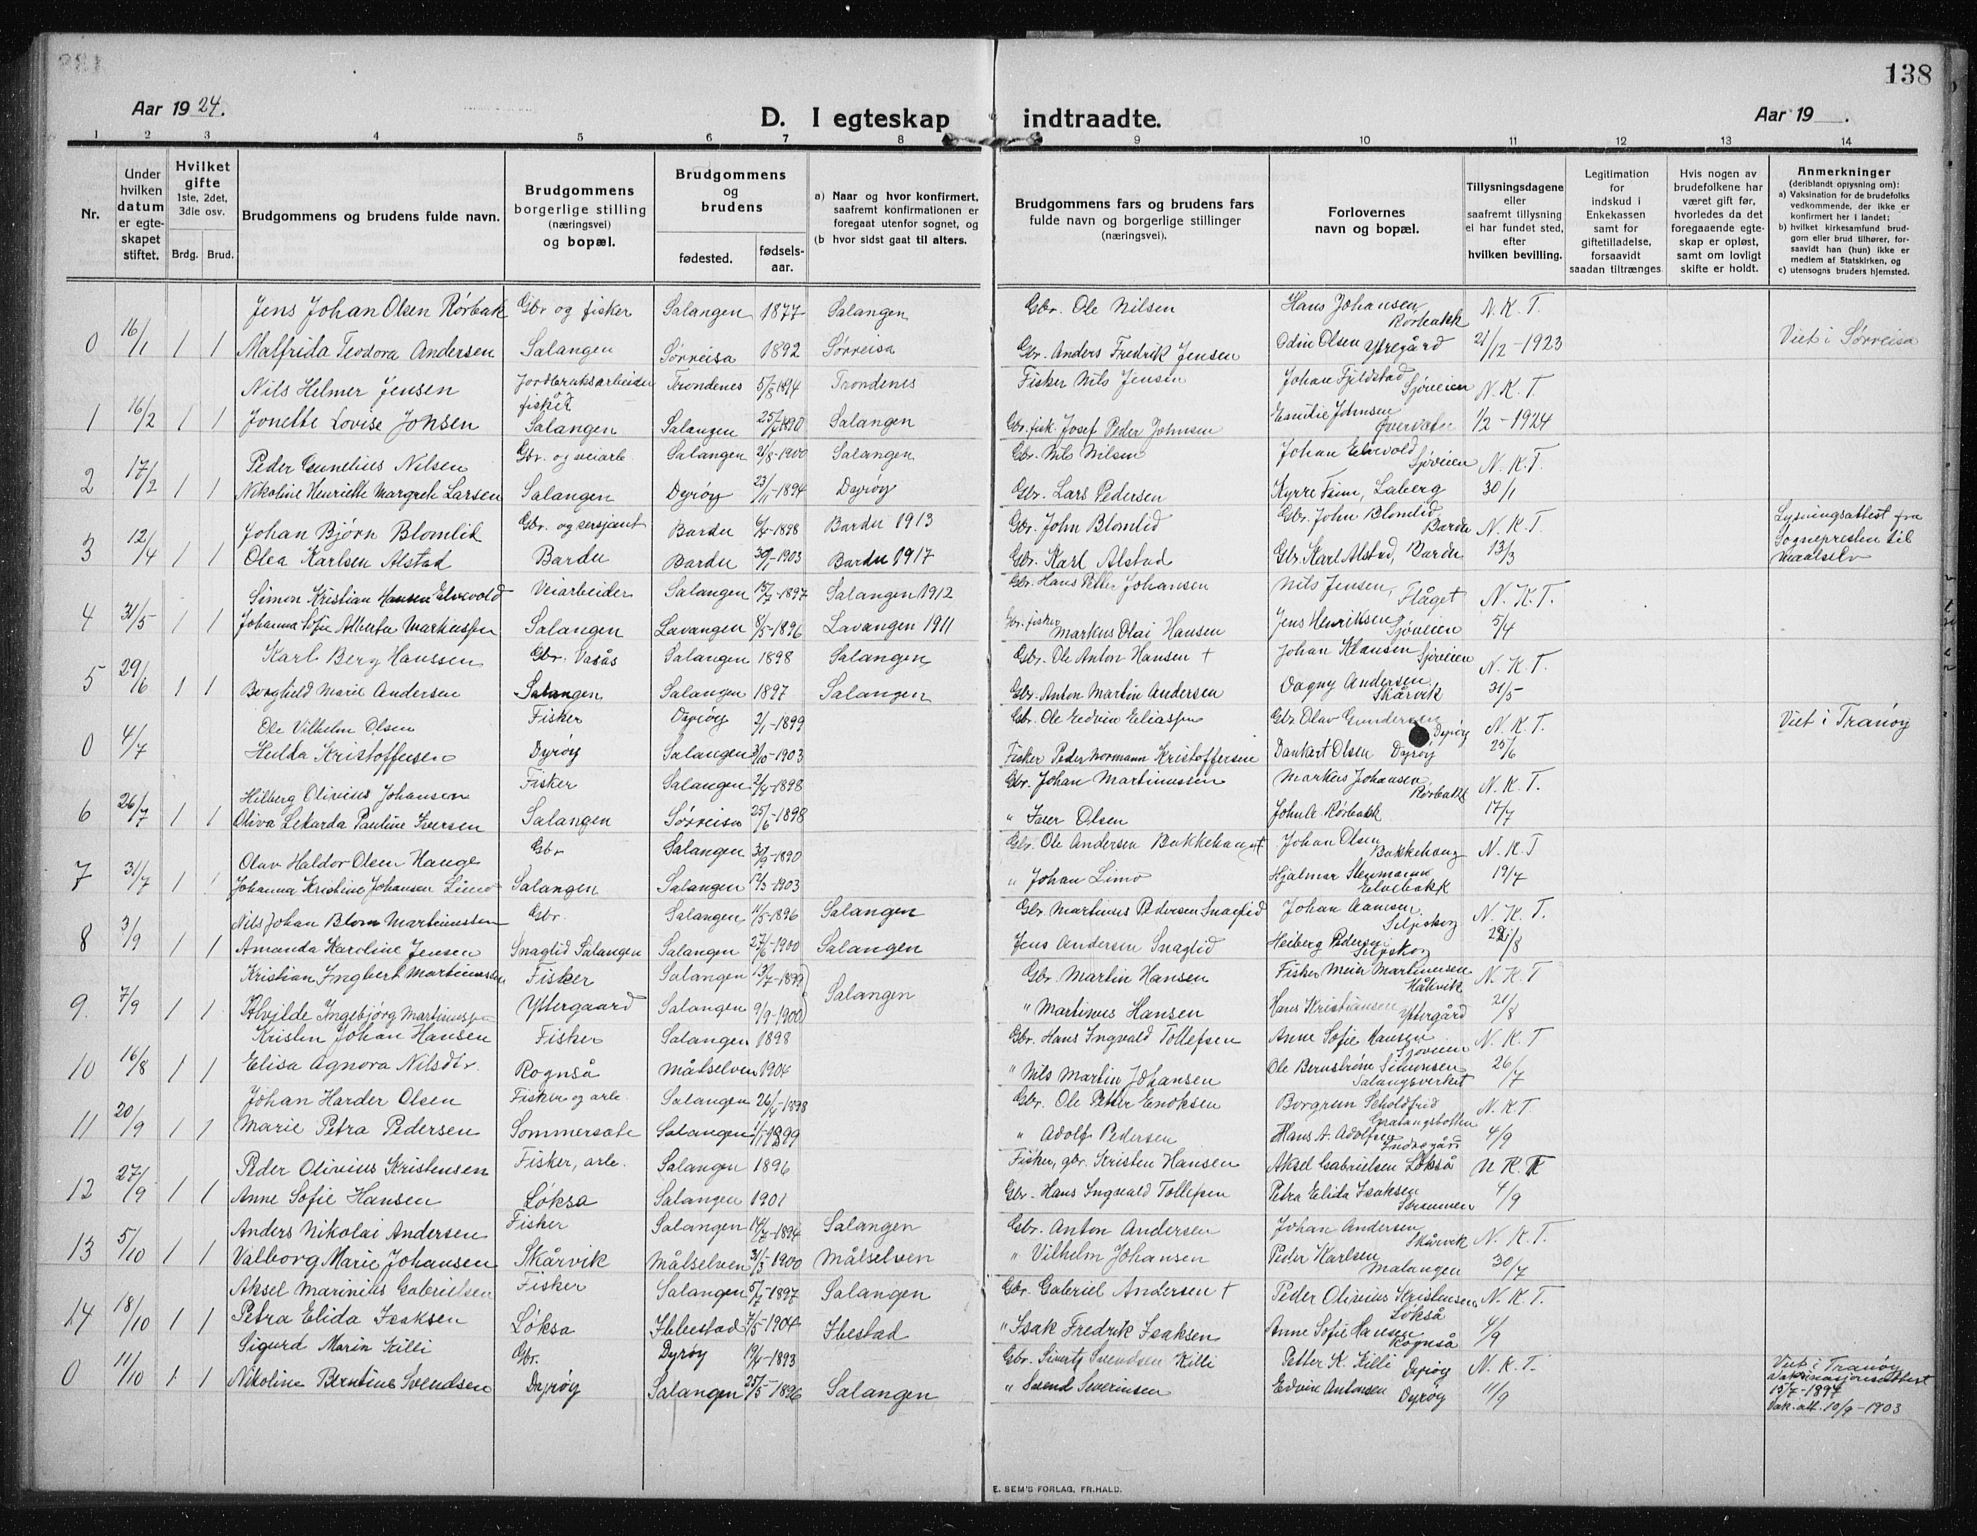 138
Aar 19 24.
D. I egteskap indtraadte.
Aar 19 .
1 2 3 4 5 6 7 8 9 10 11 12 13 14
Nr.
Under hvilken datum er egteskapet stiftet.
Hvilket gifte 1ste, 2det, 3die osv.
Brdg. Brud.
Brudgommens og brudens fulde navn.
Brudgommens borgerlige stilling (næringsvei) og bopæl.
Brudgommens og brudens
fødested. fødselsaar.
a) Naar og hvor konfirmert, saafremt konfirmationen er foregaat utenfor sognet, og
(b hvor sidst gaat til alters.
Brudgommens fars og brudens fars fulde navn og borgerlige stillinger (næringsvei).
Forlovernes navn og bopæl.
Tillysningsdagene eller saafremt tillysning ei har fundet sted, efter hvilken bevilling.
Legitimation for indskud i Enkekassen samt for giftetilladelse, forsaavidt saadan tiltrænges
Hvis nogen av brudefolkene har været gift før, hvorledes da det foregaaende egteskap er opløst, samt om lovligt skifte er holdt.
Anmerkninger (deriblandt opjysning om):
a) Vaksination for de brudefolks vedkommende, der ikke er konfirmert her i landet;
b) hvilket kirkesamfund brudgom eller brud tilhører, forsaavidt han (hun) ikke er medlem af Statskirken, og
c) utensogns bruders hjemsted.
Jens Johan Olsen Rørbak Gbr og fisker Salangen 1877 Salangen Gbr. Ole Nilsen Hans Johansen Rørbakk N. K. T.
0 16/1 1 1 Malfrida Teodora Andersen Salangen Sørreisa 1892 Sørreisa Gbr. Anders Fredrik Jensen Odin Olsen Ytregård 21/12-1923 Viet i Sørreisa
Nils Hilmer Jensen Jordbruksarbeider Trondenes 5/8-1894 Trondenes Fisker Nils Jensen Johan Fjeldstad Sjøveien N. K. T.
1 16/2 1 1 Jonette Lovise Johsen fisker Salangen Salangen 1890 Salangen Gbr. fisk. Josef Peder Johnsen Emilie Johnsen 1/2-1924
Peder Nilsen Gbr. og veiarb. Salangen 21/8-1900 Salangen Gbr. Nils Nilsen Johan Elvevold Sjøveien N. K. T.
2 17/2 1 1 Nikoline Henriette Margreth Larsen Salangen Dyrøy 23/11-1894 Dyrøy Gbr. Lars Pedersen Kyrre Laberg 30/1
Johan Bjørn Blomlid Gbr. og sersjant Bardu 1898 Bardu 1913 Gbr. John Blomlid Gbr. John Blomlid Bardu N. K. T. Lysningsattest fra
3 12/4 1 1 Olea Karlsen Alstad Bardu Bardu 1903 Bardu 1917 Gbr. Karl Alstad Gbr. Karl Alstad, Bardu 13/3 Sognepresten til Maalselv
Simon Kristian Hansen Elvevold Veiarbeider Salangen 1897 Salangen 1912 Gbr. Hans Petter Johansen Nils Jensen, Flåget N. K. T.
4 31/5 1 1 Johanna Sofie Alberta Markussen Salangen Lavangen 8/5-1896 Lavangen 1911 Gbr. fisker Markus Olai Hansen Jens Henriksen Sjøveien 5/4
Karl Berg Hanssen Gbr. Vasås Salangen 1898 Salangen Gbr. Ole Anton Hansen + Johan Klausen Sjøveien N. K. T.
5 29/6 1 1 Borghild Marie Andersen Salangen Salangen 1897 Salangen Gbr. Anton Martin Andersen Dagny Andersen Skårvik 31/5
Ole Vilhelm Olsen Fisker Dyrøy 2/1-1899 Gbr. Ole Edvin Eliassen Gbr Olav Gundersen Dyrøy N. K. T. Viet i Tranøy
0 4/7 Hulda Kristoffersen Dyrøy Salangen 3/10-1903 Fisker Peder Normann Kristoffersen Dankert Olsen Dyrøy 25/6
Hilberg Olivius Johansen Fisker Salangen 2/4-1898 Gbr. Johan Martinussen Markus Johansen Rørbakk N. K. T.
6 26/7 1 1 Oliva Lekarda Pauline Iversen Salangen Sørreisa 25/6-1898 " Iver Olsen John A Rørbakk 17/7
Olav Haldor Olsen Hauge Gbr Salangen 30/9-1890 Gbr. Ole Andersen Bakkehaug + Johan Olsen Bakkehaug N. K. T
7 31/7 1 1 Johanna Kristine Johansen Limo Salangen Salangen 1903 " Johan Limo Hjalmar Stenmann Elvebakk 19/7
Nils Johan Blom Martinussen Gbr. Salangen 11/5-1896 Salangen Gbr. Martinus Pedersen Snaglid Johan Aamsen Selpskog N. K. T.
8 3/9 1 1 Amanda Karoline Jensen Snaglid Salangen Salangen 27/6-1900 Salangen Jens Andersen Snaglid Heiberg Pedersen Selpskog /8
Kristian Ingbert Martinussen Fisker Salangen 13/7-1899 Gbr Martin Hansen Fisker Meier Martinussen Håkvik N. K. T
9. 7/9 1 1 Alvilde Ingebjørg Martinussen Yttergaard Salangen 9/9-1900 Salangen " Martinus Hansen Hans Kristiansen Yttergård 21/8
Kristen Johan Hansen Fisker Salangen 1898 Gbr. Hans Ingvald Tollefsen Anne Sofie Hansen Sjøveien N. K. T
10 16/8 1 1 Elisa Agnora Nilsdtr. Rognså Målselven 1904 " Nils Martin Johansen Ole Bernstrøm Simonsen Salangsverket 26/7
Johan Harder Olsen Fisker og arb. Salangen 26/4-1898 Gbr. Ole Petter Enoksen Borgrun Skoldfrid Gratangsbotten N. K. T.
11 20/9 1 1 Marie Petra Pedersen Sommersæte Salangen 1/1-1899 " Adolf Pedersen Hans A. Adolfsen Indregård 4/9
Peder Olivius Kristensen Fisker, arb. Salangen 1896 Fisker, gbr. Kristen Hansen Aksel Gabrielsen Løkså N. K. T
12 27/9 1 1 Anne Sofie Hansen Løksa Salangen 1901 Gbr. Hans Ingvald Tollefsen Petra Elida Isaksen Strømmen 4/9
Anders Nikolai Andersen Fisker Salangen 14/2-1894 Salangen Gbr. Anton Andersen Johan Andersen Skårvik N. K. T.
13 5/10 1 1 Valborg Marie Johansen Skårvik Målselven 31/3-1900 Målselven " Vilhelm Johansen Peder Karlsen Malangen 30/7
Aksel Marinius Gabrielsen Fisker Salangen 5/7-1897 Salangen Gbr. Gabriel Andersen + Peder Olivius Kristensen Løkså N. K. T.
14 18/10 1 1 Petra Elida Isaksen Løksa Ibbestad 7/5-1904 Ibestad " Isak Fredrik Isaksen Anne Sofie Hansen Rognså 4/9
Sigurd Marin Killi Gbr. Dyrøy 19/4-1893 Gbr. Sivert Svendsen Killi Petter K. Killi Dyrøy N. K. T. Viet i Tranøy
0 11/10 1 1 Nikoline Berntine Svendsen Dyrøy Salangen 25/5-1896 Salangen " Svend Severinsen Edvin Antonsen Dyrøy 11/9 Vaksinasjonsattest
15/7-1897
Vak. att. 10/9-1903
E. SEM'S FORLAG, FR.HALD.